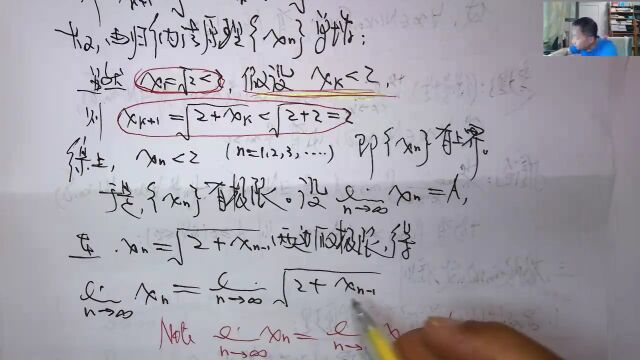 由归纳法原理{xn}
x₁=√2<2, 假设 x_K<2,
则 x_{K+1}=√(2+x_K)<√(2+2)=2
综上, xn<2 (n=1,2,3,....) 即{xn}有上界。
于是,{xn}有极限。设 lim_{n→∞} xn=A,
在 xn=√(2+x_{n-1}) 两边取极限,得
lim_{n→∞} xn=lim_{n→∞} √(2+x_{n-1})
Note lim_{n→∞} xn=lim_{n→